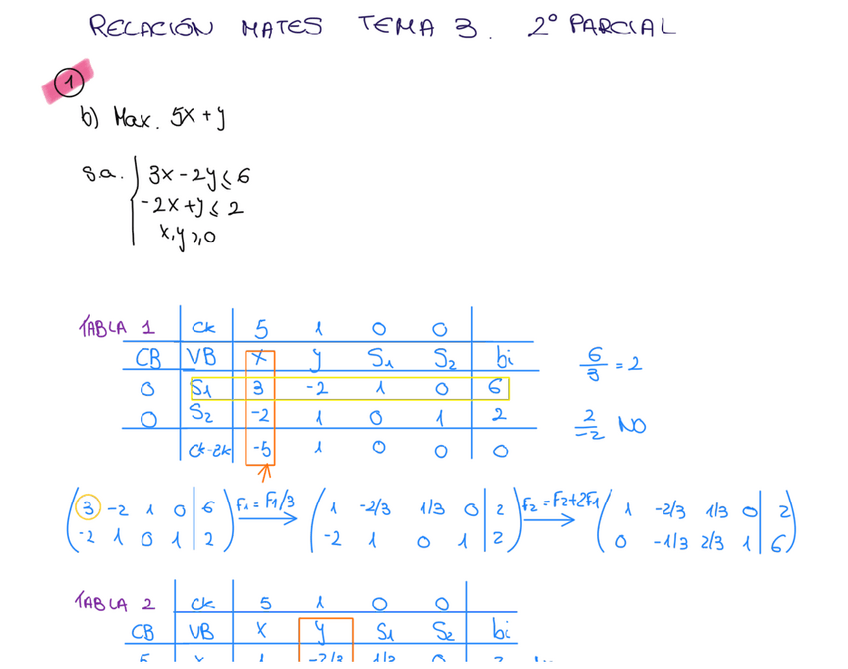 RELACIÓN MATES TEMA 3. 2º PARCIAL
1
b) Max. 5x + y
s.a. 3x - 2y ≤ 6
-2x + y ≤ 2
x, y ≥ 0
TABLA 1 Ck 5 1 0 0
CB VB x y S1 S2 bi
0 S1 3 -2 1 0 6
0 S2 -2 1 0 1 2
Ck-Zk -5 1 0 0 0
6/3 = 2
2/-2 NO
3 -2 1 0 6 F1 = F1/3 1 -2/3 1/3 0 2 F2 = F2+2F1 1 -2/3 1/3 0 2
-2 1 0 1 2 -2 1 0 1 2 0 -1/3 2/3 1 6
TABLA 2 Ck 5 1 0 0
CB VB x y S1 S2 bi
5 x 1 -2/3 1/3 0 2